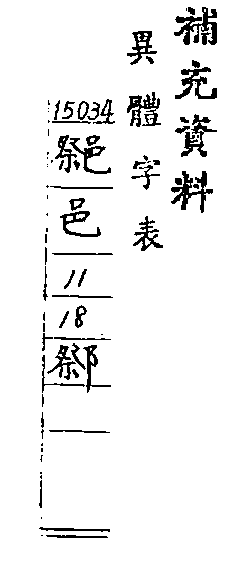 補充資料
異體字表
15034
邑
11
18